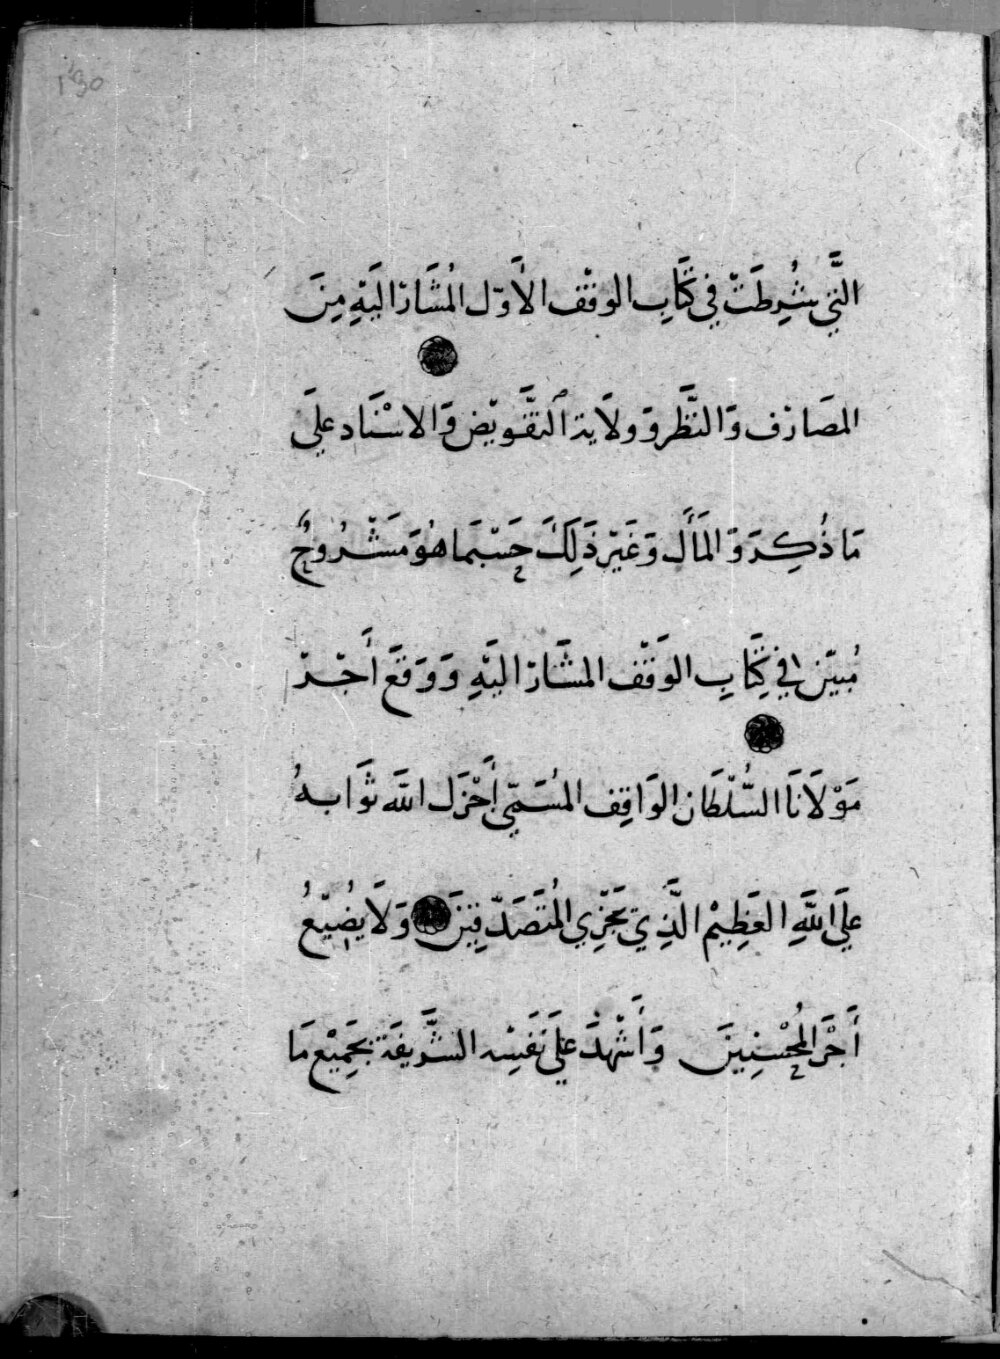 ١٩٥
الَّتِي شُرِطَتْ فِي كِتَابِ الوَقْف الأَوّل المُشَارْ اليَهِ مِنَ
المصَارْف وَالنَّظَر وَولَاية التَّفَويْض وَالاسْنَاد علَى
مَا ذُكِرَ وَ المَأَل وَغَيْر ذَلِكَ حَسْبَمَا هُوَ مَشْرُوحٌ
مُبيّن فِي كِتَابِ الوَقْف المشَارْ اليَهِ وَوَقَعَ أَجْرْ
مَوْلَانَا السُّلْطَان الوَاقِف المُسَمّي أَجْزَل اللّه ثَوَابهُ
علَى اللَّهِ العَظِيمْ الَّذِي يَجْزِي المُتَصَدّقِينَ وَلَا يضُيّعُ
أَجْرَ المُحْسِنِينَ وَأَشْهْدَ علَى نَفَسِه الشَّرِيفَة بجَمِيْع مَا